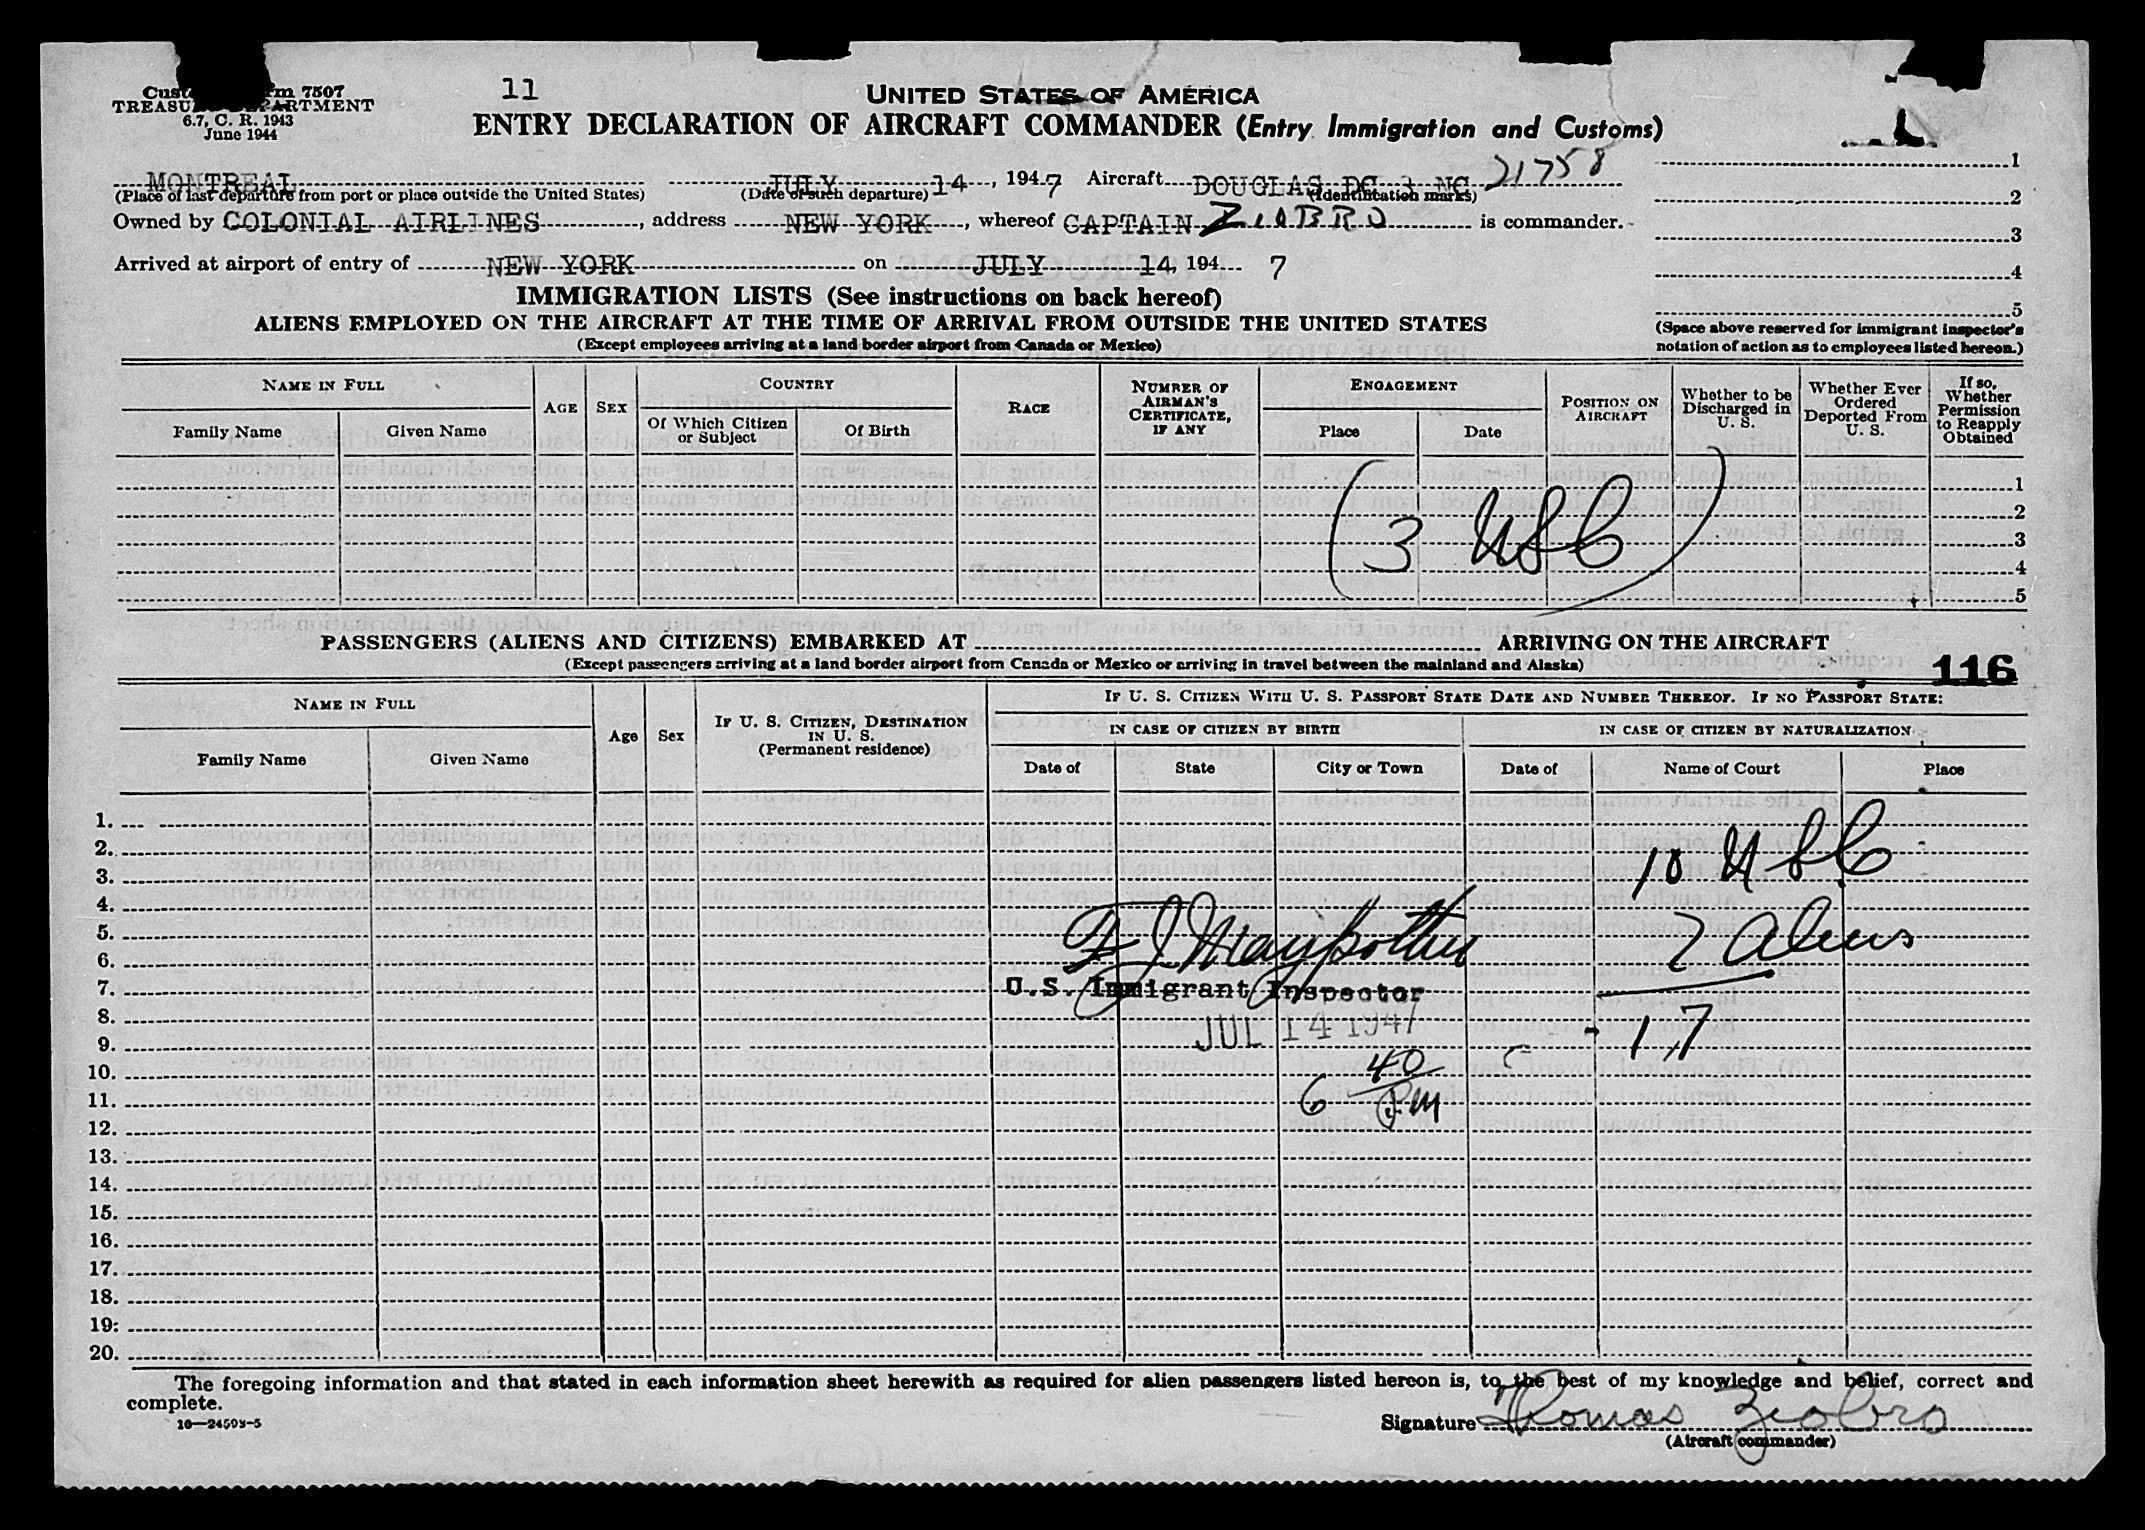 11
Cust m 7507
TREASU PARTMENT
6.7, C. R. 1943
June 1944
UNITED STATES OF AMERICA
ENTRY DECLARATION OF AIRCRAFT COMMANDER (Entry Immigration and Customs)
MONTREAL JULY 14, 1947 Aircraft DOUGLAS DC 3 NC 21758
(Place of last departure from port or place outside the United States) (Date of such departure) (Identification marks)
Owned by COLONIAL AIRLINES, address NEW YORK, whereof CAPTAIN ZIOBRO is commander.
Arrived at airport of entry of NEW YORK on JULY 14, 194 7
1
2
3
4
5
(Space above reserved for immigrant inspector's
notation of action as to employees listed hereon.)
IMMIGRATION LISTS (See instructions on back hereof)
ALIENS EMPLOYED ON THE AIRCRAFT AT THE TIME OF ARRIVAL FROM OUTSIDE THE UNITED STATES
(Except employees arriving at a land border airport from Canada or Mexico)
NAME IN FULL
Family Name
Given Name
AGE
SEX
COUNTRY
Of Which Citizen
or Subject
Of Birth
RACE
NUMBER OF
AIRMAN'S
CERTIFICATE,
IF ANY
ENGAGEMENT
Place
Date
POSITION ON
AIRCRAFT
Whether to be
Discharged in
U. S.
Whether Ever
Ordered
Deported From
U. S.
If so,
Whether
Permission
to Reapply
Obtained
1
2
3
4
5
(3 USC)
PASSENGERS (ALIENS AND CITIZENS) EMBARKED AT ARRIVING ON THE AIRCRAFT
(Except passengers arriving at a land border airport from Canada or Mexico or arriving in travel between the mainland and Alaska)
116
NAME IN FULL
Family Name
Given Name
Age
Sex
IF U. S. CITIZEN, DESTINATION
IN U. S.
(Permanent residence)
IF U. S. CITIZEN WITH U. S. PASSPORT STATE DATE AND NUMBER THEREOF. IF NO PASSPORT STATE:
IN CASE OF CITIZEN BY BIRTH
IN CASE OF CITIZEN BY NATURALIZATION
Date of
State
City or Town
Date of
Name of Court
Place
1.
2.
3.
4.
5.
6.
7.
8.
9.
10.
11.
12.
13.
14.
15.
16.
17.
18.
19.
20.
10 USC
7 Aliens
17
F J
U.S. Immigrant Inspector
JUL 14 1947
6 40 PM
The foregoing information and that stated in each information sheet herewith as required for alien passengers listed hereon is, to the best of my knowledge and belief, correct and
complete.
16—24593-5
Signature Thomas Ziobro
(Aircraft commander)